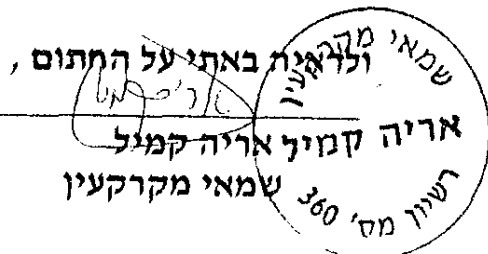 ולראיה באתי על החתום ,
אריה קמיל
שמאי מקרקעין
שמאי מקרקעין
אריה קמיל
רשיון מס' 360